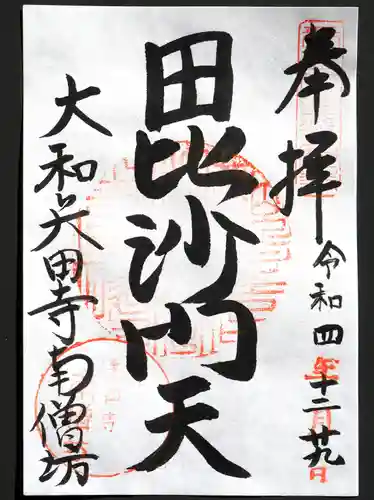 奉拝
令和四年十二月廿九日
毘沙門天
大和矢田寺南僧坊